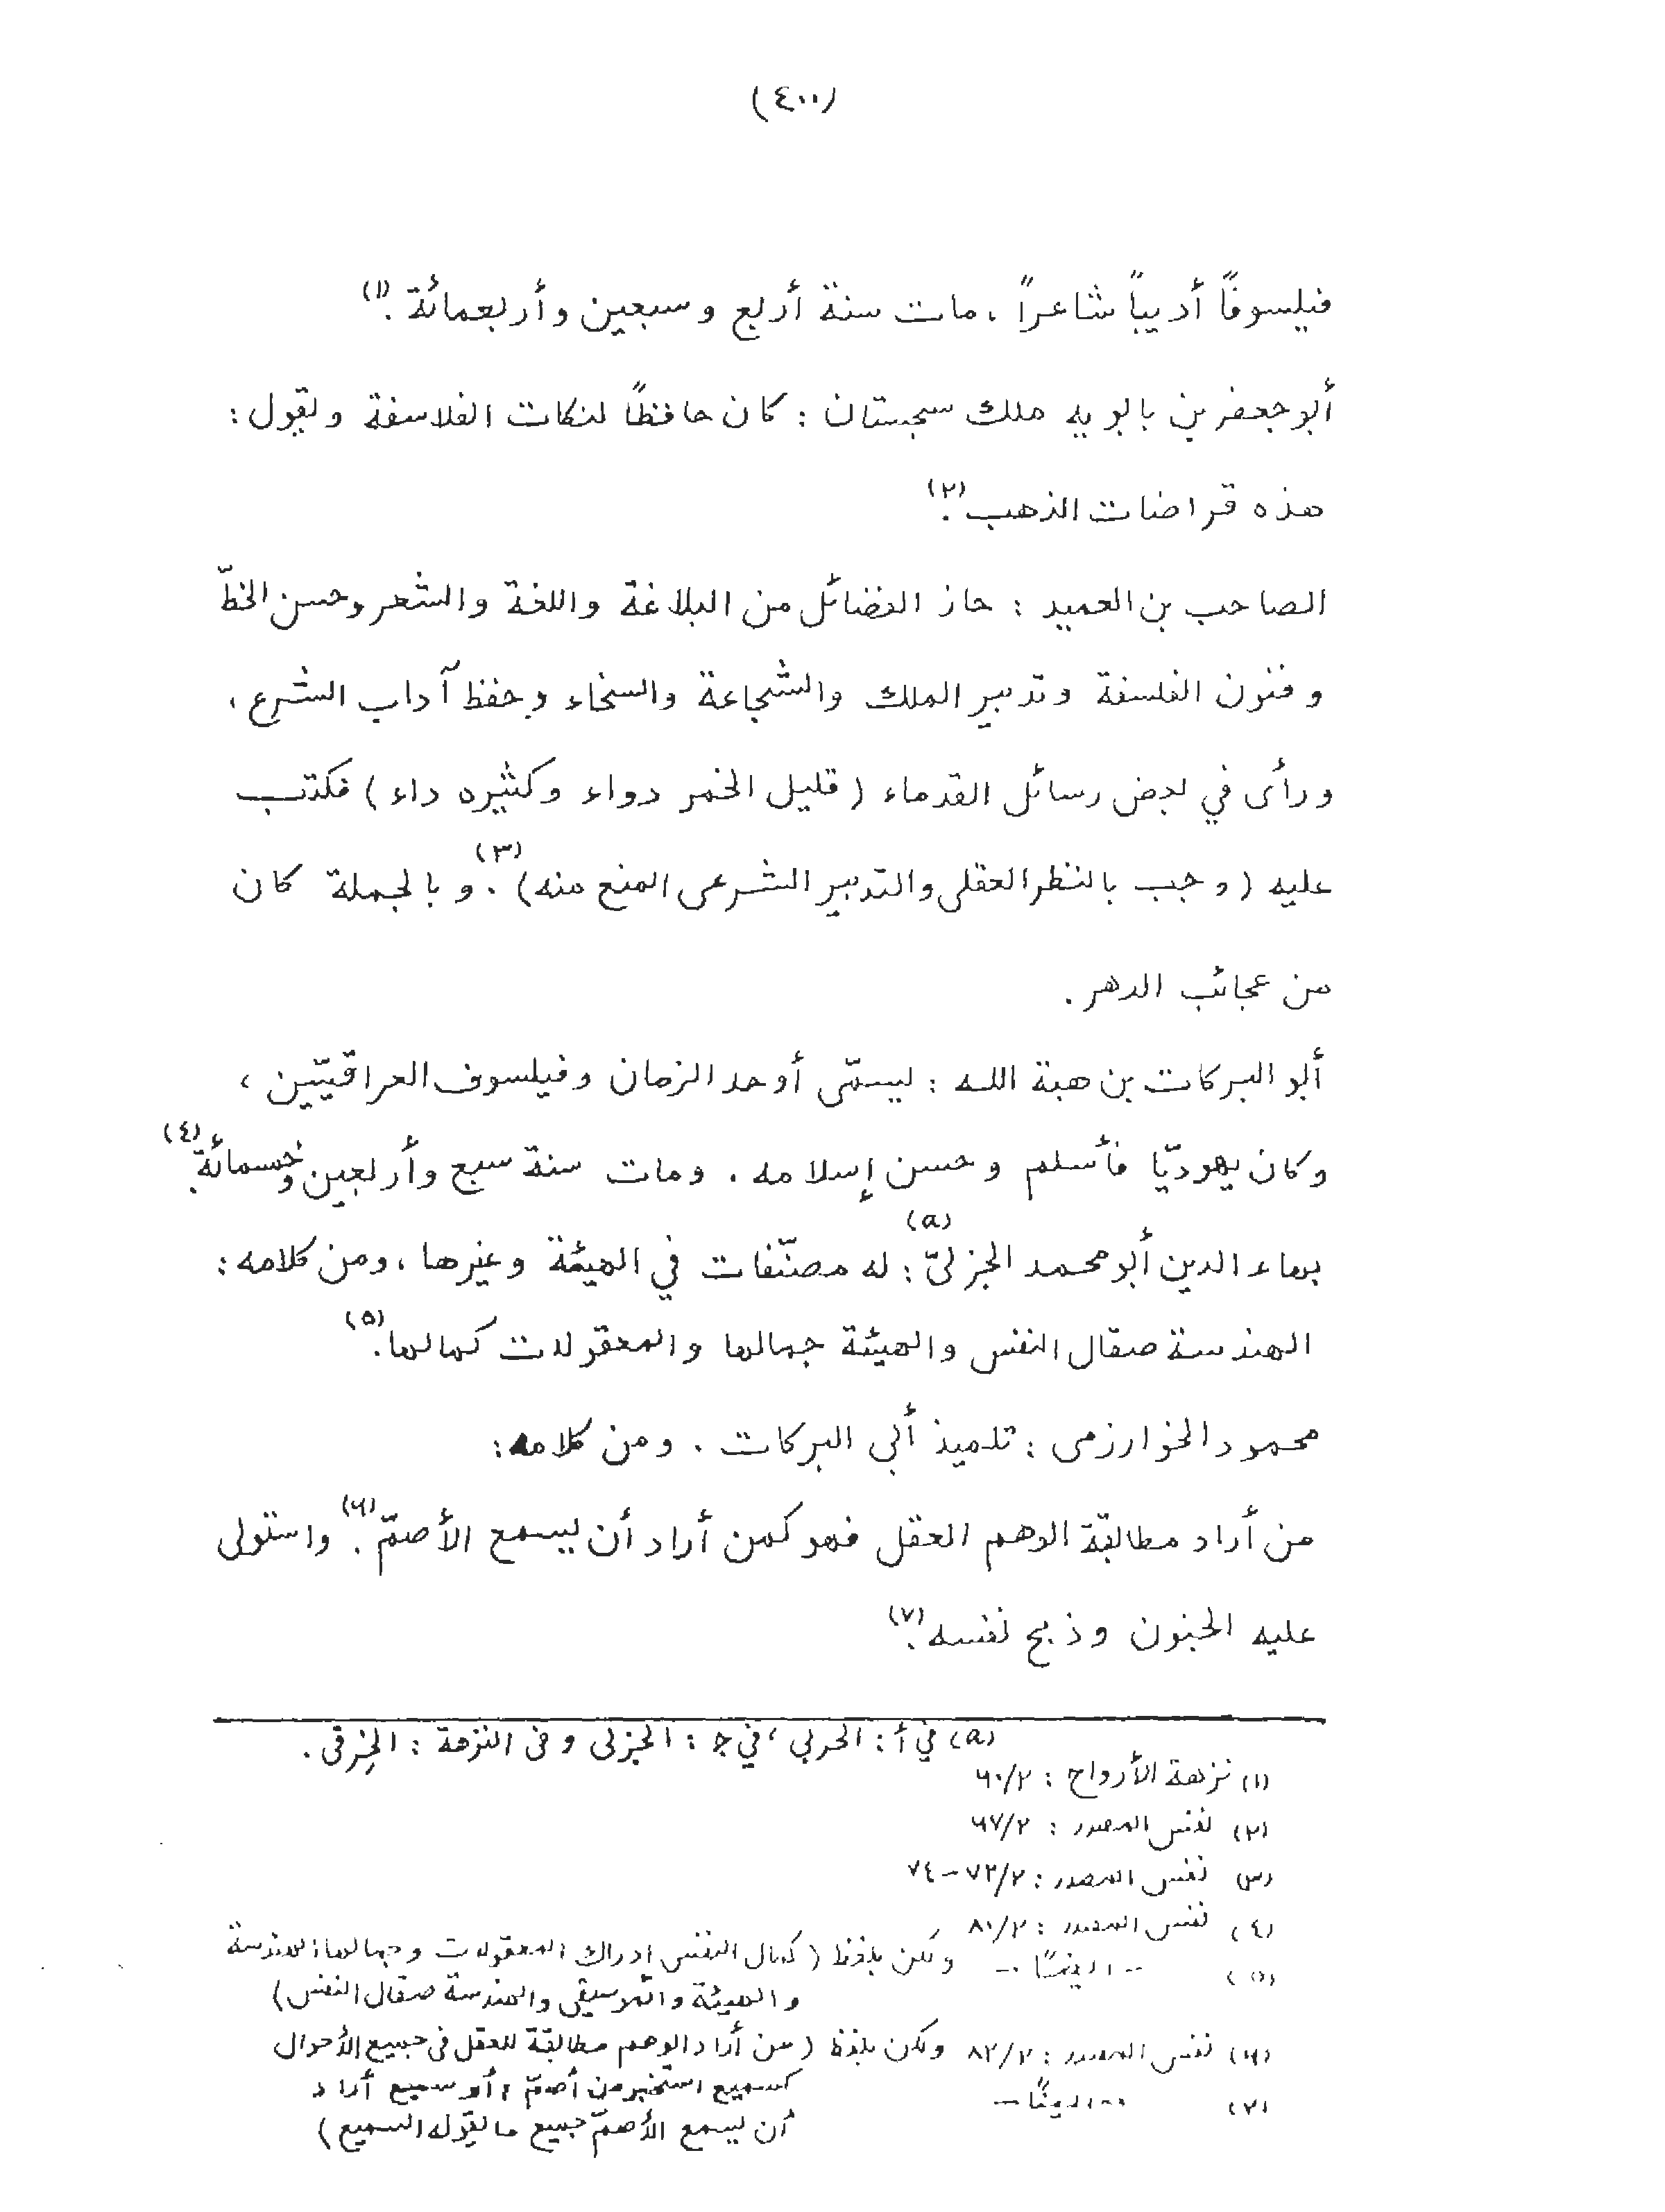 (٤٠٠)
فيلسوفًا أديباً شاعراً ، مات سنة أربع وسبعين وأربعمائة .(١)
أبو جعفر بن بابويه ملك سجستان : كان حافظاً لنكات الفلاسفة ويقول :
هذه قراضات الذهب .(٢)
الصاحب بن العميد : حاز الفضائل من البلاغة واللغة والشعر وحسن الخطّ
وفنون الفلسفة وتدبير الملك والشجاعة والسخاء وحفظ آداب الشرع ،
ورأى في بعض رسائل القدماء ( قليل الخمر دواء وكثيره داء ) فكتب
عليه ( وجب بالنظر العقلى والتدبير الشرعى المنع منه )(٣) . وبالجملة كان
من عجائب الدهر .
أبو البركات بن هبة الله : يسمّى أوحد الزمان وفيلسوف العراقيّين ،
وكان يهوديّا فأسلم وحسن إسلامه . ومات سنة سبع وأربعين وخمسمائة .(٤)
بهاء الدين أبو محمد الجزلىّ(a) : له مصنّفات في الهيئة وغيرها ، ومن كلامه :
الهندسة صقال النفس والهيئة جمالها والمعقولات كمالها .(٥)
محمود الخوارزمى : تلميذ أبى البركات . ومن كلامه :
من أراد مطابقة الوهم العقل فهو كمن أراد أن يسمع الأصمّ .(٦) واستولى
عليه الجنون وذبح نفسه .(٧)
(a) في أ : الحربي ، في ج : الجزلى وفى النزهة : الخِرقى .
(١) نزهة الأرواح : ٦٠/٢
(٢) نفس المصدر : ٦٧/٢
(٣) نفس المصدر : ٧٣/٢ – ٧٤
(٤) نفس المصدر : ٨٠/٢
(٥) -- ايضًا -- ولكن بلفظ ( كمال النفس إدراك المعقولات وجمالها الهندسة
والهيئة والموسيقى والهندسة صقال النفس )
(٦) نفس المصدر : ٨٢/٢ ولكن بلفظ ( من أراد الوهم مطابقة للعقل فى جميع الأحوال
كسميع استخبر من أصمّ ، أو سميع أراد
(٧) -- ايضًا --
أن يسمع الأصمّ جميع ما يقوله السميع )